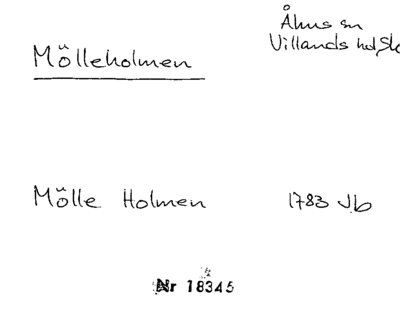 Åhus sn
Villands hd, Sk
Mölleholmen
Mölle Holmen 1783 Jb
Nr 18345